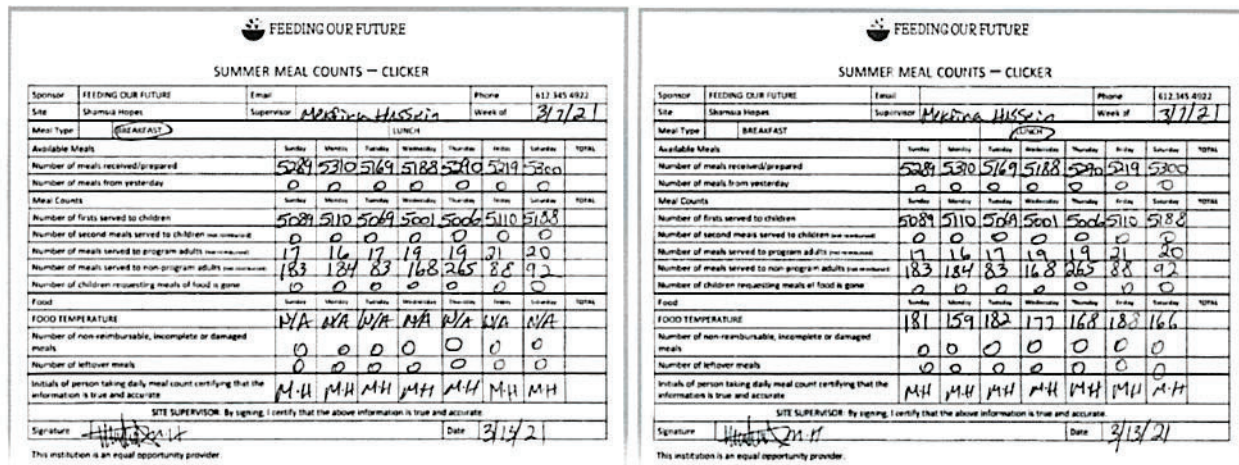 FEEDING OUR FUTURE
SUMMER MEAL COUNTS — CLICKER
Sponsor FEEDING OUR FUTURE Email Phone 612.345.4922
Site Shamsia Hopes Supervisor Week of 3/7/21
Meal Type BREAKFAST LUNCH
Available Meals Sunday Monday Tuesday Wednesday Thursday Friday Saturday TOTAL
Number of meals received/prepared 5289 5310 5169 5188 5290 5219 5300
Number of meals from yesterday 0 0 0 0 0 0 0
Meal Counts Sunday Monday Tuesday Wednesday Thursday Friday Saturday TOTAL
Number of firsts served to children 5089 5110 5069 5001 5006 5110 5188
Number of second meals served to children 0 0 0 0 0 0 0
Number of meals served to program adults 17 16 17 19 19 21 20
Number of meals served to non-program adults 183 184 83 168 265 88 92
Number of children requesting meals of food is gone 0 0 0 0 0 0 0
Food Sunday Monday Tuesday Wednesday Thursday Friday Saturday TOTAL
FOOD TEMPERATURE N/A N/A N/A N/A N/A N/A N/A
Number of non-reimbursable, incomplete or damaged
meals 0 0 0 0 0 0 0
Number of leftover meals 0 0 0 0 0 0 0
Initials of person taking daily meal count certifying that the
information is true and accurate M.H M.H M.H M.H M.H M.H M.H
SITE SUPERVISOR: By signing, I certify that the above information is true and accurate.
Signature M.H Date 3/13/21
This institution is an equal opportunity provider.
FEEDING OUR FUTURE
SUMMER MEAL COUNTS — CLICKER
Sponsor FEEDING OUR FUTURE Email Phone 612.345.4922
Site Shamsia Hopes Supervisor Week of 3/7/21
Meal Type BREAKFAST LUNCH
Available Meals Sunday Monday Tuesday Wednesday Thursday Friday Saturday TOTAL
Number of meals received/prepared 5289 5310 5169 5188 5290 5219 5300
Number of meals from yesterday 0 0 0 0 0 0 0
Meal Counts Sunday Monday Tuesday Wednesday Thursday Friday Saturday TOTAL
Number of firsts served to children 5089 5110 5069 5001 5006 5110 5188
Number of second meals served to children 0 0 0 0 0 0 0
Number of meals served to program adults 17 16 17 19 19 21 20
Number of meals served to non-program adults 183 184 83 168 265 88 92
Number of children requesting meals of food is gone 0 0 0 0 0 0 0
Food Sunday Monday Tuesday Wednesday Thursday Friday Saturday TOTAL
FOOD TEMPERATURE 181 159 182 177 168 188 166
Number of non-reimbursable, incomplete or damaged
meals 0 0 0 0 0 0 0
Number of leftover meals 0 0 0 0 0 0 0
Initials of person taking daily meal count certifying that the
information is true and accurate M.H M.H M.H M.H M.H M.H M.H
SITE SUPERVISOR: By signing, I certify that the above information is true and accurate.
Signature M.H Date 3/13/21
This institution is an equal opportunity provider.